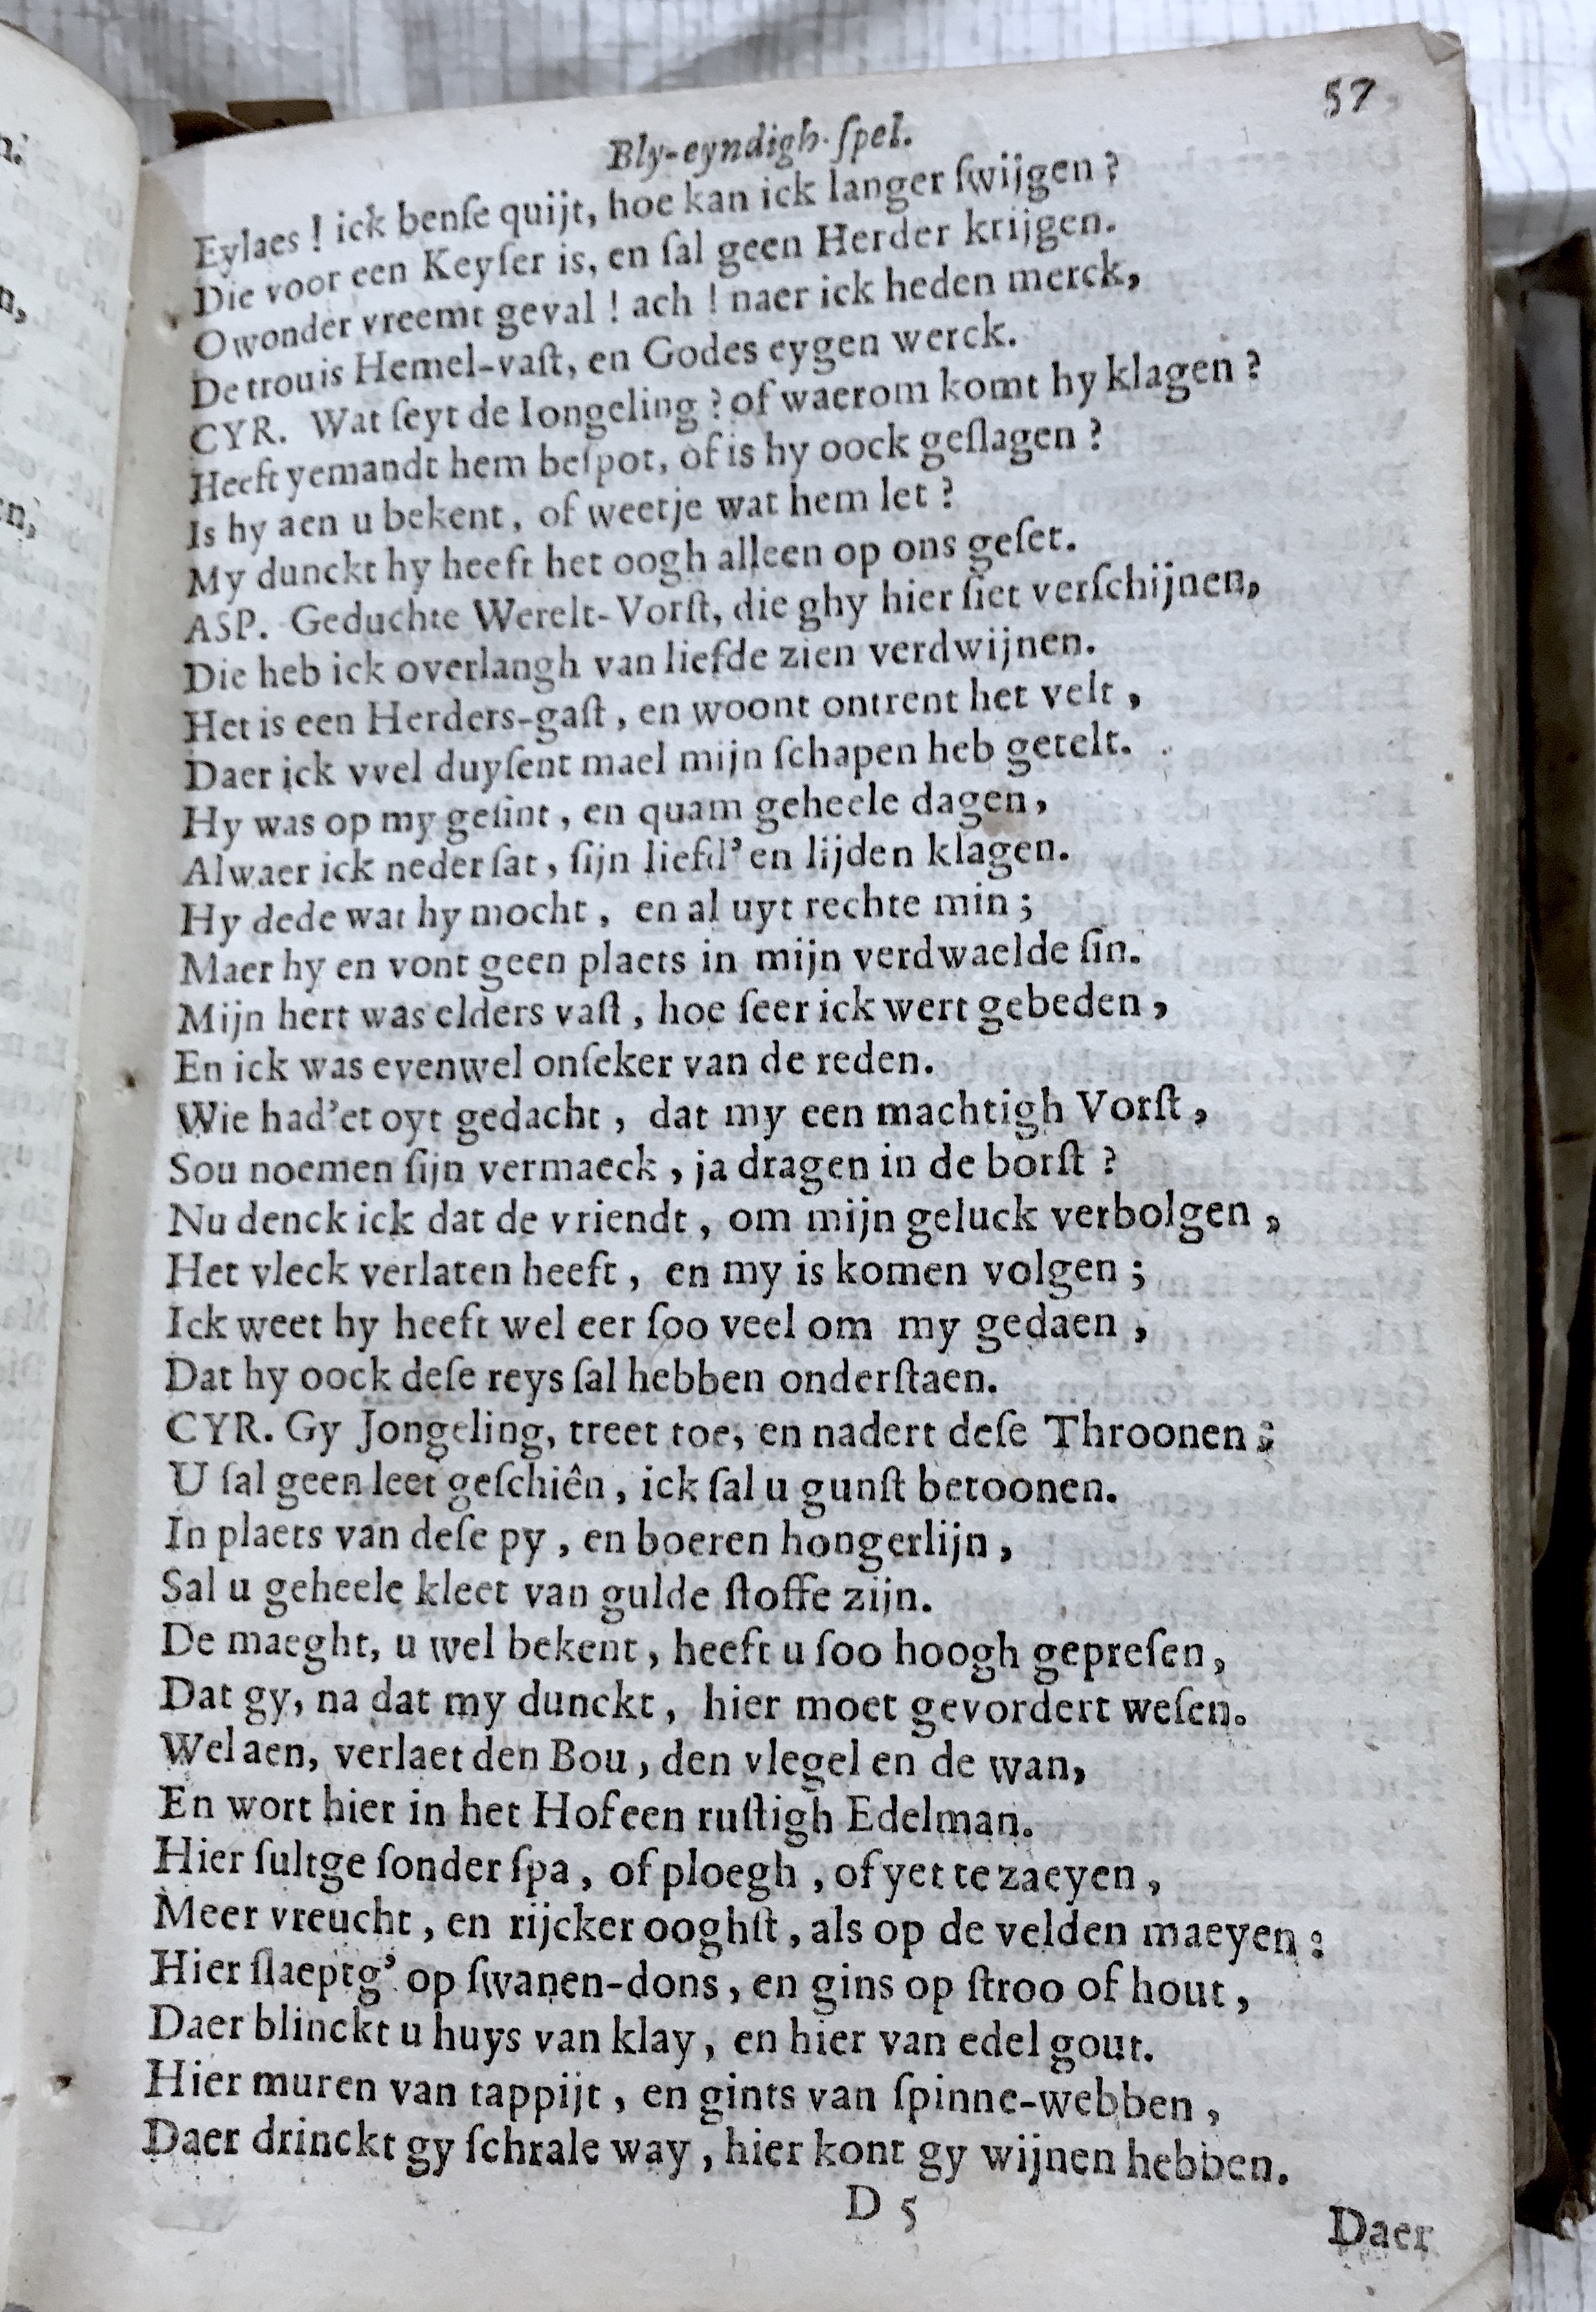 57
Bly-eyndigh-ſpel.
Eylaes ! ick benſe quijt, hoe kan ick langer ſwijgen ?
Die voor een Keyſer is, en ſal geen Herder krijgen.
O wonder vreemt geval ! ach ! naer ick heden merck,
De trou is Hemel-vaſt, en Godes eygen werck.
CYR. Wat ſeyt de Iongeling ? of waerom komt hy klagen ?
Heeft yemandt hem beſpot, of is hy oock geſlagen ?
Is hy aen u bekent, of weetje wat hem let ?
My dunckt hy heeft het oogh alleen op ons geſet.
ASP. Geduchte Werelt-Vorſt, die ghy hier ſiet verſchijnen,
Die heb ick overlangh van liefde zien verdwijnen.
Het is een Herders-gaſt, en woont ontrent het velt,
Daer ick vvel duyſent mael mijn ſchapen heb getelt.
Hy was op my geſint, en quam geheele dagen,
Alwaer ick neder ſat, ſijn liefd' en lijden klagen.
Hy dede wat hy mocht, en al uyt rechte min ;
Maer hy en vont geen plaets in mijn verdwaelde ſin.
Mijn hert was elders vaſt, hoe ſeer ick wert gebeden,
En ick was evenwel onſeker van de reden.
Wie had'et oyt gedacht, dat my een machtigh Vorſt,
Sou noemen ſijn vermaeck, ja dragen in de borſt ?
Nu denck ick dat de vriendt, om mijn geluck verbolgen,
Het vleck verlaten heeft, en my is komen volgen ;
Ick weet hy heeft wel eer ſoo veel om my gedaen,
Dat hy oock deſe reys ſal hebben onderſtaen.
CYR. Gy Jongeling, treet toe, en nadert deſe Throonen ;
U ſal geen leet geſchiên, ick ſal u gunſt betoonen.
In plaets van deſe py, en boeren hongerlijn,
Sal u geheele kleet van gulde ſtoffe zijn.
De maeght, u wel bekent, heeft u ſoo hoogh gepreſen,
Dat gy, na dat my dunckt, hier moet gevordert weſen.
Wel aen, verlaet den Bou, den vlegel en de wan,
En wort hier in het Hof een ruſtigh Edelman.
Hier ſultge ſonder ſpa, of ploegh, of yet te zaeyen,
Meer vreucht, en rijcker ooghſt, als op de velden maeyen :
Hier ſlaeptg' op ſwanen-dons, en gins op ſtroo of hout,
Daer blinckt u huys van klay, en hier van edel gout.
Hier muren van tappijt, en gints van ſpinne-webben,
Daer drinckt gy ſchrale way, hier kont gy wijnen hebben.
D 5
Daer